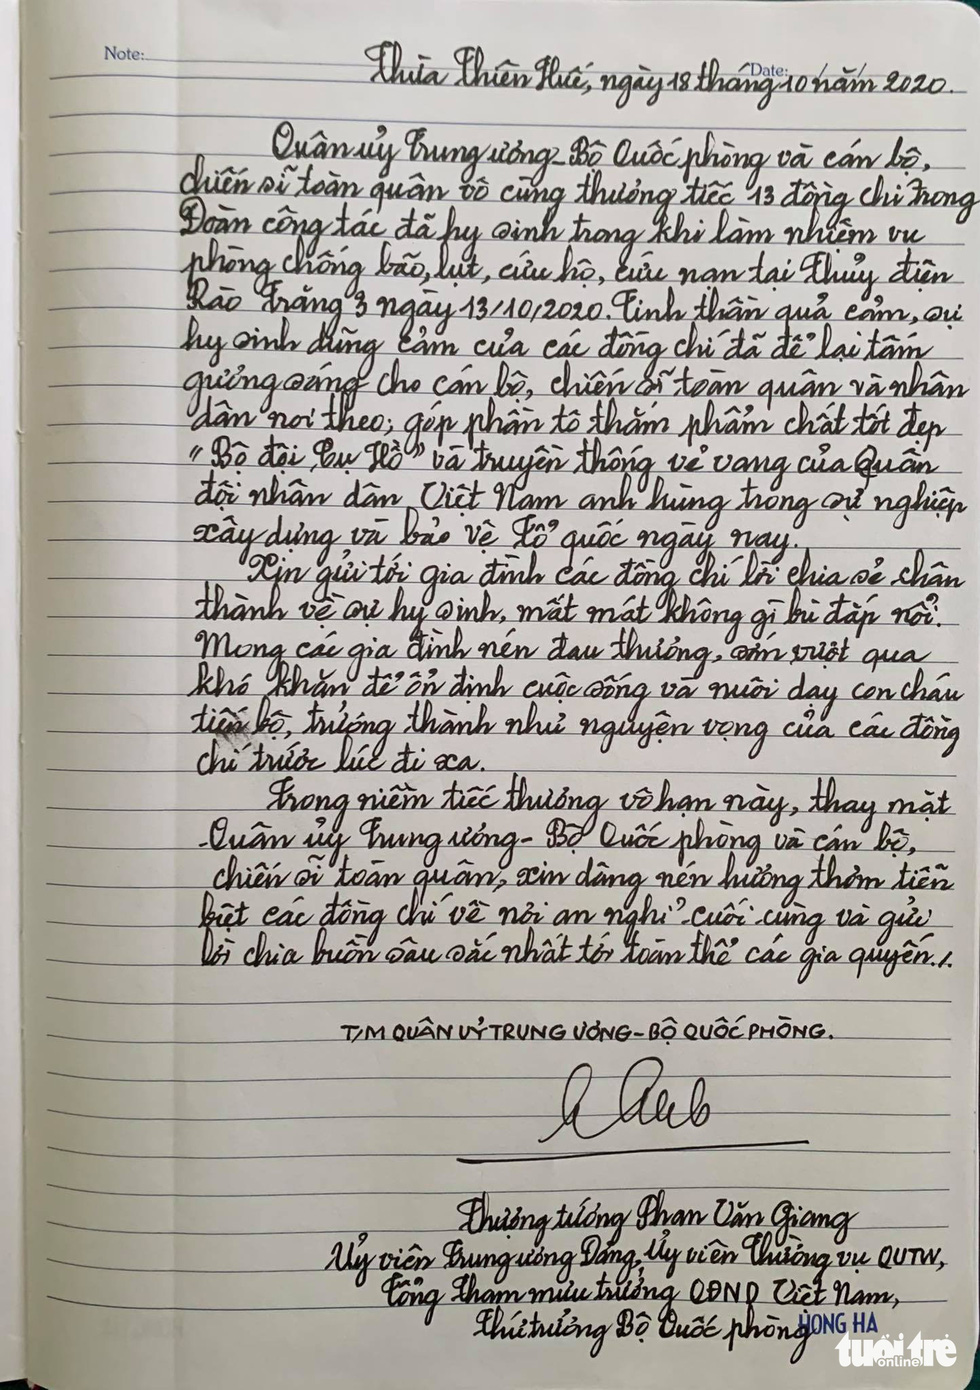 Note:
Date:
Thừa Thiên Huế, ngày 18 tháng 10 năm 2020.
Quân uỷ Trung ương - Bộ Quốc phòng và cán bộ,
chiến sĩ toàn quân vô cùng thương tiếc 13 đồng chí trong
Đoàn công tác đã hy sinh trong khi làm nhiệm vụ
phòng chống bão, lụt, cứu hộ, cứu nạn tại Thủy điện
Rào Trăng 3 ngày 13/10/2020. Tinh thần quả cảm, sự
hy sinh dũng cảm của các đồng chí đã để lại tấm
gương sáng cho cán bộ, chiến sĩ toàn quân và nhân
dân noi theo; góp phần tô thắm phẩm chất tốt đẹp
"Bộ đội Cụ Hồ" và truyền thống vẻ vang của Quân
đội nhân dân Việt Nam anh hùng trong sự nghiệp
xây dựng và bảo vệ Tổ quốc ngày nay.
Xin gửi tới gia đình các đồng chí lời chia sẻ chân
thành về sự hy sinh, mất mát không gì bù đắp nổi.
Mong các gia đình nén đau thương, sớm vượt qua
khó khăn để ổn định cuộc sống và nuôi dạy con cháu
tiến bộ, trưởng thành như nguyện vọng của các đồng
chí trước lúc đi xa.
Trong niềm tiếc thương vô hạn này, thay mặt
Quân ủy Trung ương - Bộ Quốc phòng và cán bộ,
chiến sĩ toàn quân, xin dâng nén hương thơm tiễn
biệt các đồng chí về nơi an nghỉ cuối cùng và gửi
lời chia buồn sâu sắc nhất tới toàn thể các gia quyến./.
T/M QUÂN UỶ TRUNG ƯƠNG - BỘ QUỐC PHÒNG.
Thượng tướng Phan Văn Giang
Uỷ viên Trung ương Đảng, Uỷ viên Thường vụ QUTW,
Tổng Tham mưu trưởng QĐND Việt Nam,
Thứ trưởng Bộ Quốc phòng
HONG HA
tuổi trẻ
online